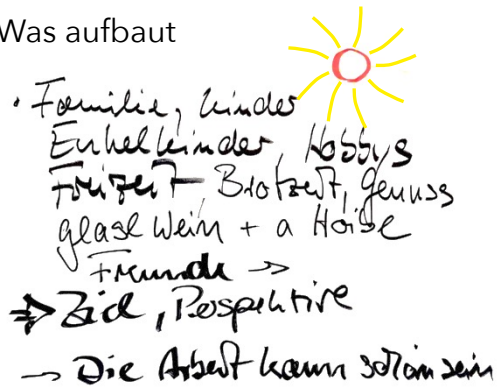 Was aufbaut
• Familie, Kinder
Enkelkinder, Hobbys
Freizeit, Brotzeit, Genuss
glasl Wein + a Hoibe
Freunde ->>
=> Ziel, Perspektive
-> Die Arbeit kann schön sein